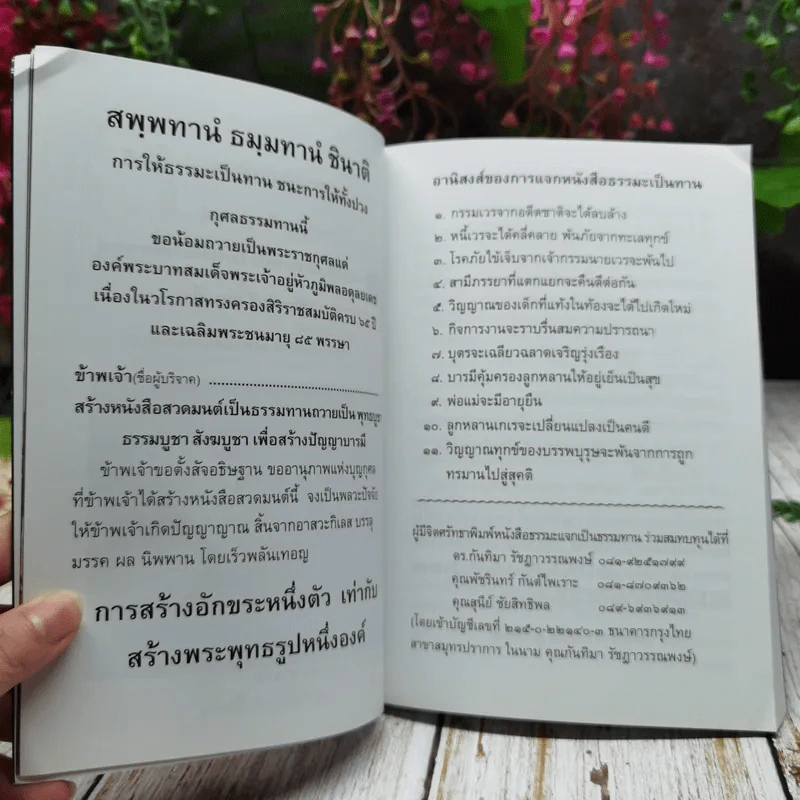 สพฺพทานํ ธมฺมทานํ ชินาติ
การให้ธรรมะเป็นทาน ชนะการให้ทั้งปวง
กุศลธรรมทานนี้
ขอน้อมถวายเป็นพระราชกุศลแด่
องค์พระบาทสมเด็จพระเจ้าอยู่หัวภูมิพลอดุลยเดช
เนื่องในวโรกาสทรงครองสิริราชสมบัติครบ ๖๕ ปี
และเฉลิมพระชนมายุ ๘๕ พรรษา
ข้าพเจ้า(ชื่อผู้บริจาค) ................................
สร้างหนังสือสวดมนต์เป็นธรรมทานถวายเป็น พุทธบูชา
ธรรมบูชา สังฆบูชา เพื่อสร้างปัญญาบารมี
ข้าพเจ้าขอตั้งสัจอธิษฐาน ขออานุภาพแห่งบุญกุศล
ที่ข้าพเจ้าได้สร้างหนังสือสวดมนต์นี้ จงเป็นพลวะปัจจัย
ให้ข้าพเจ้าเกิดปัญญาญาณ สิ้นจากอาสวะกิเลส บรรลุ
มรรค ผล นิพพาน โดยเร็วพลันเทอญ
การสร้างอักขระหนึ่งตัว เท่ากับ
สร้างพระพุทธรูปหนึ่งองค์
อานิสงส์ของการแจกหนังสือธรรมะเป็นทาน
๑. กรรมเวรจากอดีตชาติจะได้ลบล้าง
๒. หนี้เวรจะได้คลี่คลาย พ้นภัยจากทะเลทุกข์
๓. โรคภัยไข้เจ็บจากเจ้ากรรมนายเวรจะพ้นไป
๔. สามีภรรยาที่แตกแยกจะคืนดีต่อกัน
๕. วิญญาณของเด็กที่แท้งในท้องจะได้ไปเกิดใหม่
๖. กิจการงานจะราบรื่นสมความปรารถนา
๗. บุตรจะเฉลียวฉลาดเจริญรุ่งเรือง
๘. บารมีคุ้มครองลูกหลานให้อยู่เย็นเป็นสุข
๙. พ่อแม่จะมีอายุยืน
๑๐. ลูกหลานเกเรจะเปลี่ยนแปลงเป็นคนดี
๑๑. วิญญาณทุกข์ของบรรพบุรุษจะพ้นจากการถูก
ทรมานไปสู่สุคติ
ผู้มีจิตศรัทธาพิมพ์หนังสือธรรมะแจกเป็นธรรมทาน ร่วมสมทบทุนได้ที่
ดร.กันทิมา รัชฎาวรรณพงษ์ ๐๘๑-๙๒๕๑๗๙๙
คุณพัชรินทร์ กันต์ไพเราะ ๐๘๑-๘๗๐๙๓๖๒
คุณสุนีย์ ชัยสิทธิพล ๐๘๙-๖๙๓๖๙๑๓
(โดยเข้าบัญชีเลขที่ ๒๑๕-๐-๒๒๑๔๐-๓ ธนาคารกรุงไทย
สาขาสมุทรปราการ ในนาม คุณกันทิมา รัชฎาวรรณพงษ์)